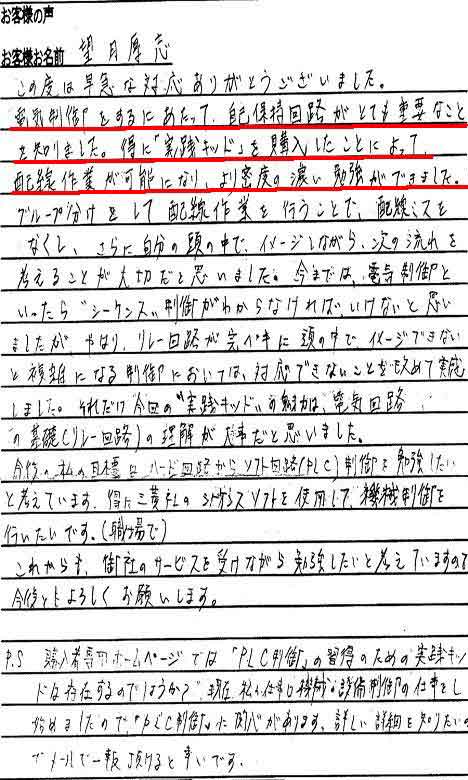 お客様の声
お客様お名前 望月厚志
この度は早急な対応ありがとうございました。
電気制御をするにあたって、自己保持回路がとても重要なこと
を知りました。得に「実践キッド」を購入したことによって、
配線作業が可能になり、より密度の濃い勉強ができました。
グループ分けをして配線作業を行うことで、配線ミスを
なくし、さらに自分の頭の中で、イメージしながら、次の流れを
考えることが大切だと思いました。今までは、電気制御と
いったら"シーケンス"制御がわからなければ、いけないと思い
ましたが、やはり、リレー回路が完ペキに頭の中で、イメージできない
と複雑になる制御においては、対応できないことを改めて実感
しました。それだけ今回の"実践キッド"の魅力は、電気回路
の基礎(リレー回路)の理解が大事だと思いました。
今後の私の目標はハード回路からソフト回路(PLC)制御を勉強したい
と考えています。得に三菱社のシーケンスソフトを使用して、機械制御を
行いたいです。(職場で)
これからも、御社のサービスを受けながら勉強したいと考えていますので
今後ともよろしくお願いします。
P.S 購入者専用ホームページでは「PLC制御」の習得のための実践キッ
ドは存在するのでしょうか? 現在、私の仕事は機械の設備制御の仕事をし
始めましたので「PLC制御」に関心があります。詳しい詳細を知りたいの
でメールで一報頂けると幸いです。